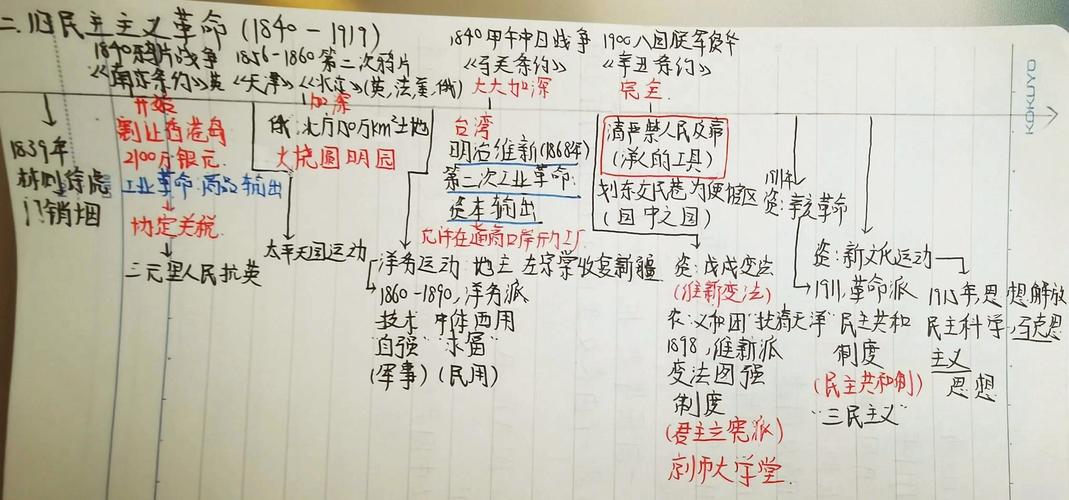 二.旧民主主义革命(1840-1919)
1840鸦片战争
《南京条约》英
1856-1860第二次鸦片
《天津》《北京》(英,法,美,俄)
1840甲午中日战争
《马关条约》
大大加深
1900八国联军侵华
《辛丑条约》
完全
1839年
林则徐虎
门销烟
开始
割让香港岛
2100万银元.
工业革命:商品输出
协定关税.
三元里人民抗英
加深
俄:北方150万km²土地
火烧圆明园
太平天国运动
台湾
明治维新(1868年)
第二次工业革命:
资本输出
允许在通商口岸开为工厂
洋务运动:地主 左宗棠收复新疆
1860-1890,洋务派
技术 中体西用
"自强" "求富"
(军事)(民用)
清严禁人民反帝
(洋人的工具)
划东交民巷为使馆区
(国中之国)
资:戊戌变法
(维新变法)
农:义和团"扶清灭洋"
1898,维新派
变法图强
制度
(君主立宪派)
京师大学堂.
1911年
资:辛亥革命
1911,革命派
民主共和
制度
(民主共和制)
"三民主义"
资:新文化运动
1915年,思想解放
民主科学,马克思
主义
思想
KOKUYO